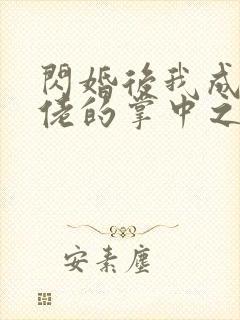 閃婚後我成
佬的掌中之
安素塵